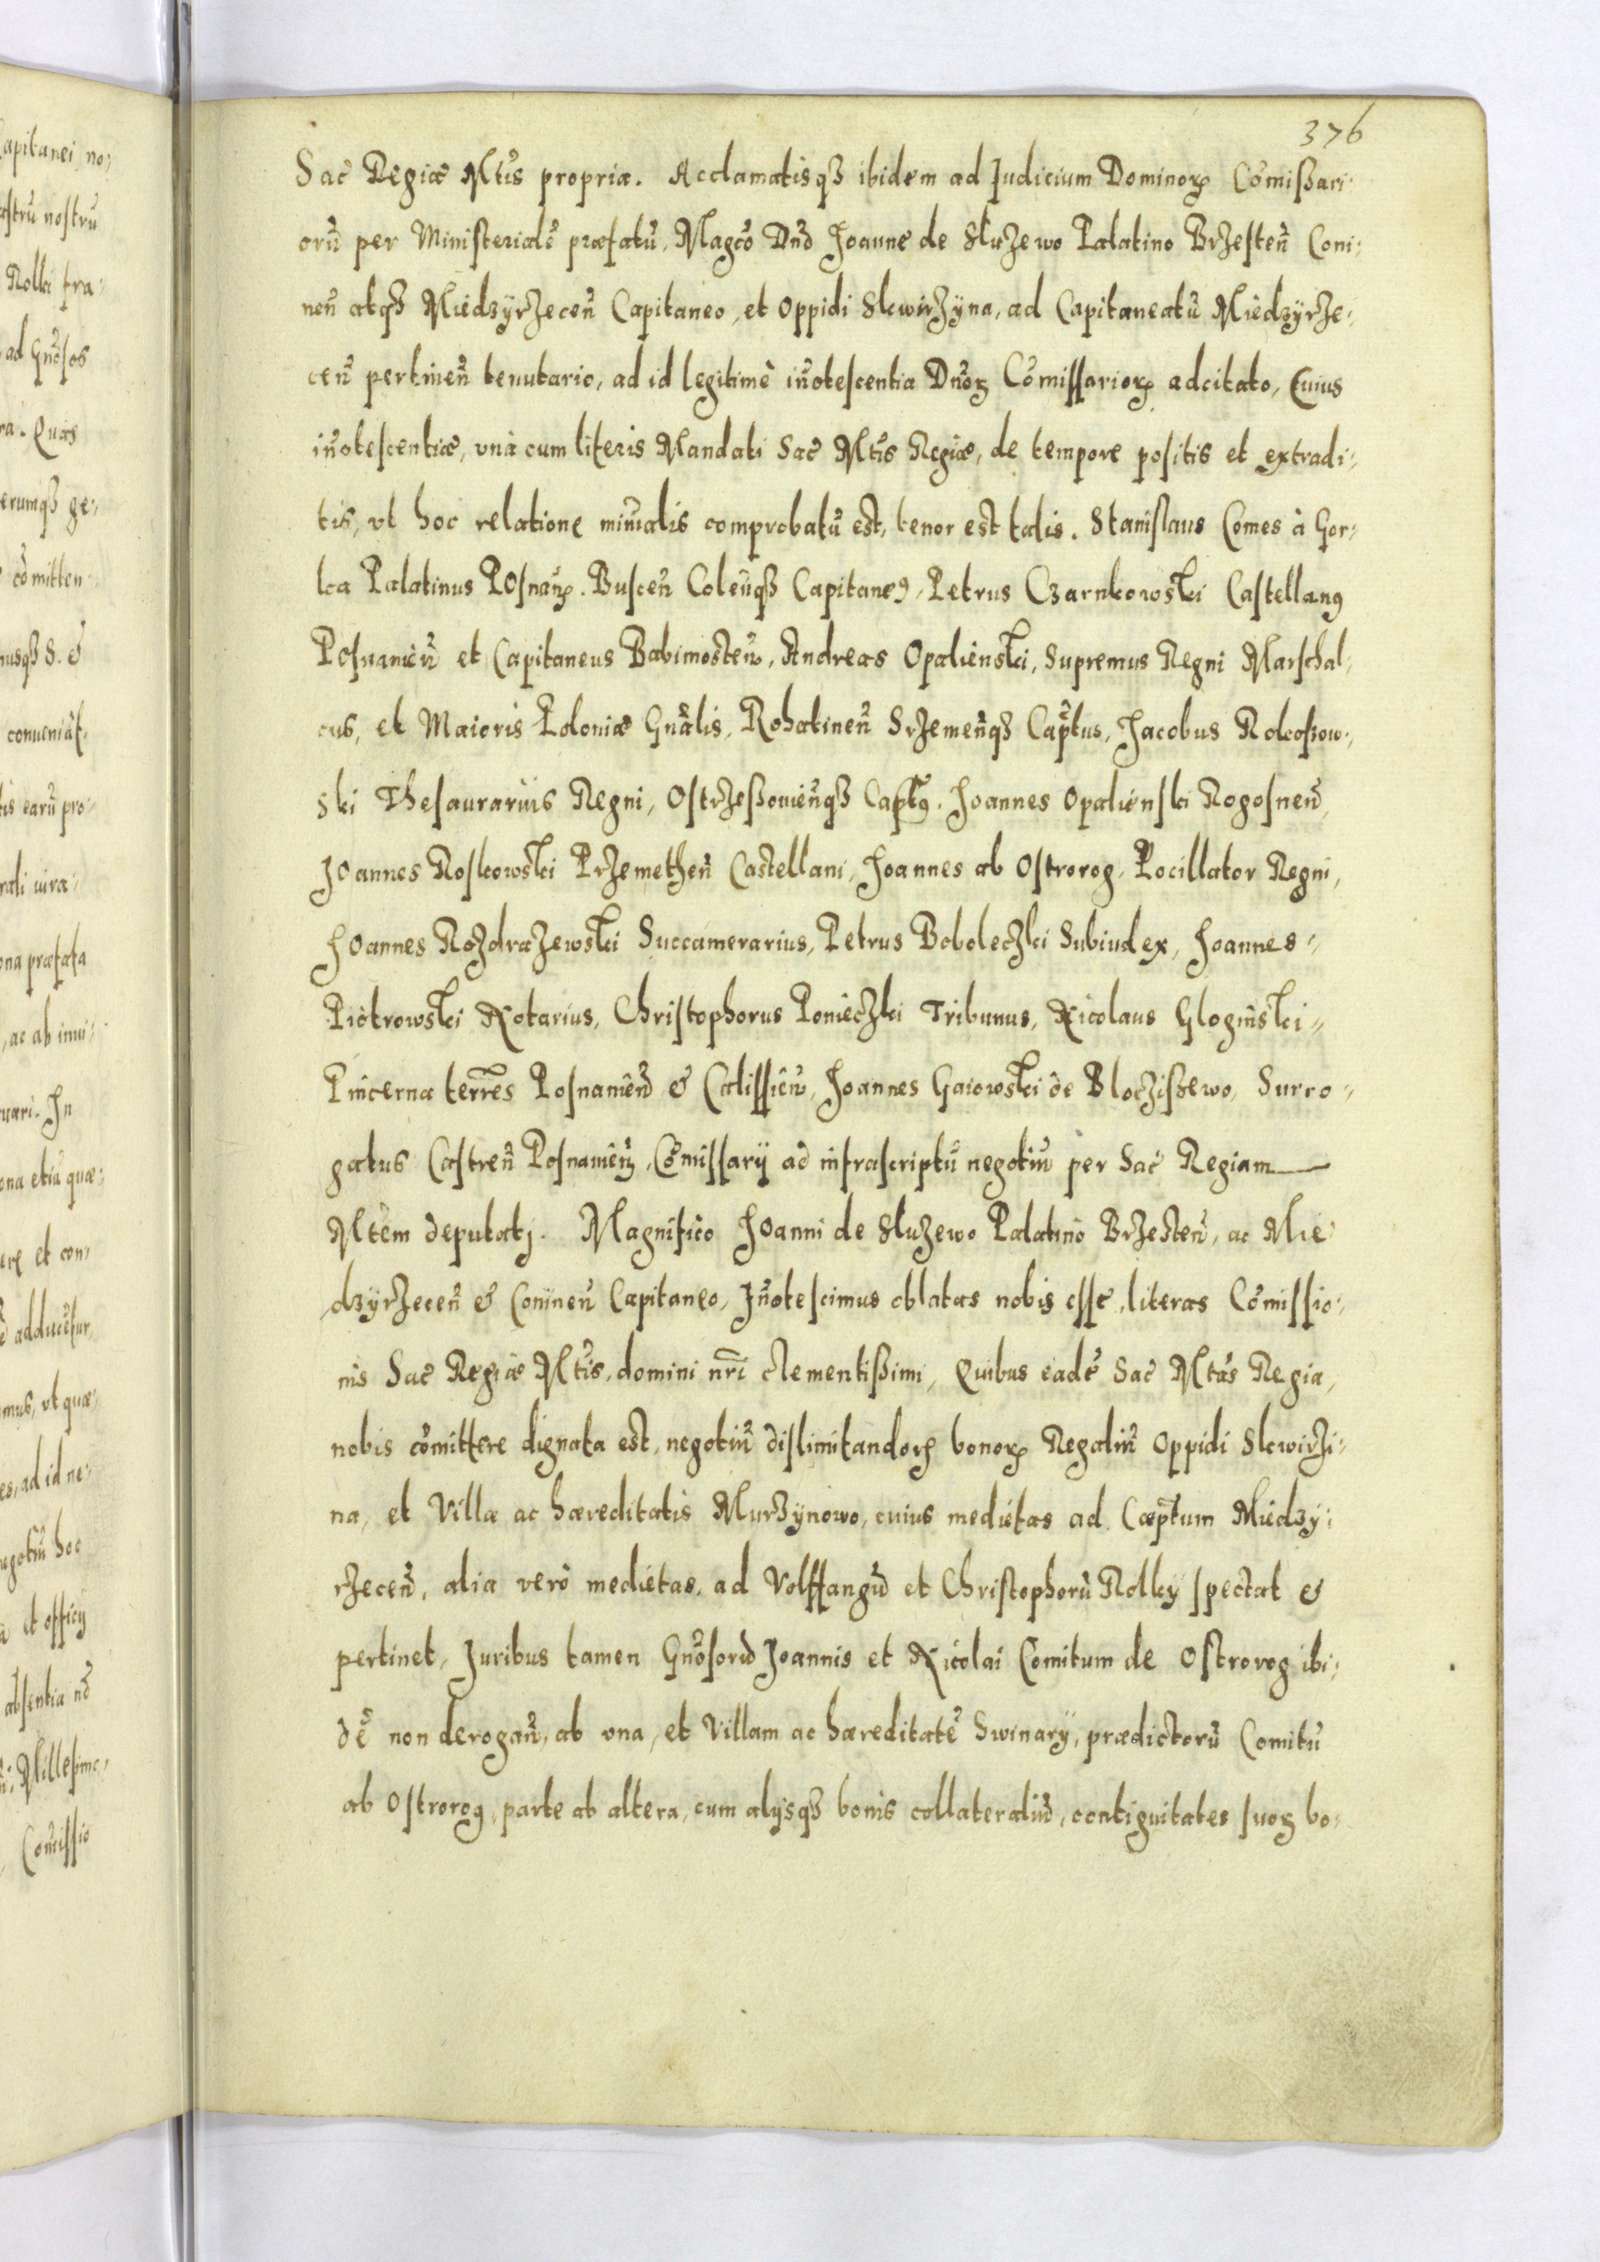 376
Sac̃ Regiæ Mt̃is propriæ. Acclamatisqȝ ibidem ad Judicium Dominoꝝ Com̃ißari-
orũ per Ministerialẽ præfatũ, Magc̃o Dñd Joanne de Służewo Palatino Brzesteñ Coni-
neñ atqȝ Miedzyrzeceñ Capitaneo, et Oppidi Skwirzyna, ad Capitaneatũ Miedzyrze-
ceñ pertineñ tenutario, ad id legitimè iñotescentia Dñoꝝ Com̃issarioꝝ adcitato, Cuius
iñotescentiæ, vnà cum literis Mandati Sac̃ Mt̃is Regiæ, de tempore positis et extradi-
tis, vt hoc relatione miñialis comprobatũ est, tenor est talis. Stanislaus Comes à Gor-
ka Palatinus Posnañ. Busceñ Coleñqȝ Capitaneꝰ, Petrus Czarnkowski Castellanꝰ
Posnanieñ et Capitaneus Babimosteñ, Andreas Opalienski, Supremus Regni Marschal-
cus, et Maioris Poloniæ Gñalis, Rohatineñ Srzemeñqȝ Cap̃tus, Jacobus Rokoßow-
ski Thesaurarius Regni, Ostrzeßowieñqȝ Cap̃tꝰ. Joannes Opalienski Rogosneñ,
Joannes Roskowski Przemetheñ Castellani, Joannes ab Ostrorog, Pocillator Regni,
Joannes Rozdrazewski Succamerarius, Petrus Boboleczki Subiudex, Joannes
Piotrowski Notarius, Christophorus Ponieczki Tribunus, Nicolaus Gloginski
Pincerna terr̃es Posnanieñ & Calissieñ, Joannes Gaiowski de Bloczißewo, Surro-
gatus Castreñ Posnanieñ, Com̃issarij ad infrascriptũ negotiũ per Sac̃ Regiam
Mt̃em deputatj. Magnifico Joanni de Służewo Palatino Brzesteñ, ac Mie-
dzyrzeceñ & Conineñ Capitaneo, Iñotescimus oblatas nobis esse, literas Com̃issio-
nis Sac̃ Regiæ Mt̃is, domini nr̃i clementißimi, Quibus eadẽ Sac̃ Mt̃as Regia,
nobis com̃ittere dignata est, negotiũ dislimitandoꝝ bonoꝝ Regaliũ Oppidi Skwirzi-
na, et Villæ ac hæreditatis Murzynowo, cuius medietas ad Cap̃tum Miedzy-
rzeceñ, alia verò medietas, ad Volffangũ et Christophorũ Nolky spectat &
pertinet, Juribus tamen Gñosorũ Joannis et Nicolai Comitum de Ostrorog ibi-
dẽ non derogañ, ab vna, et Villam ac hæreditatẽ Swinary, prædictorũ Comitũ
ab Ostrorog, parte ab altera, cum alijsqȝ bonis collateraliũ, contiguitates suoꝝ bo-